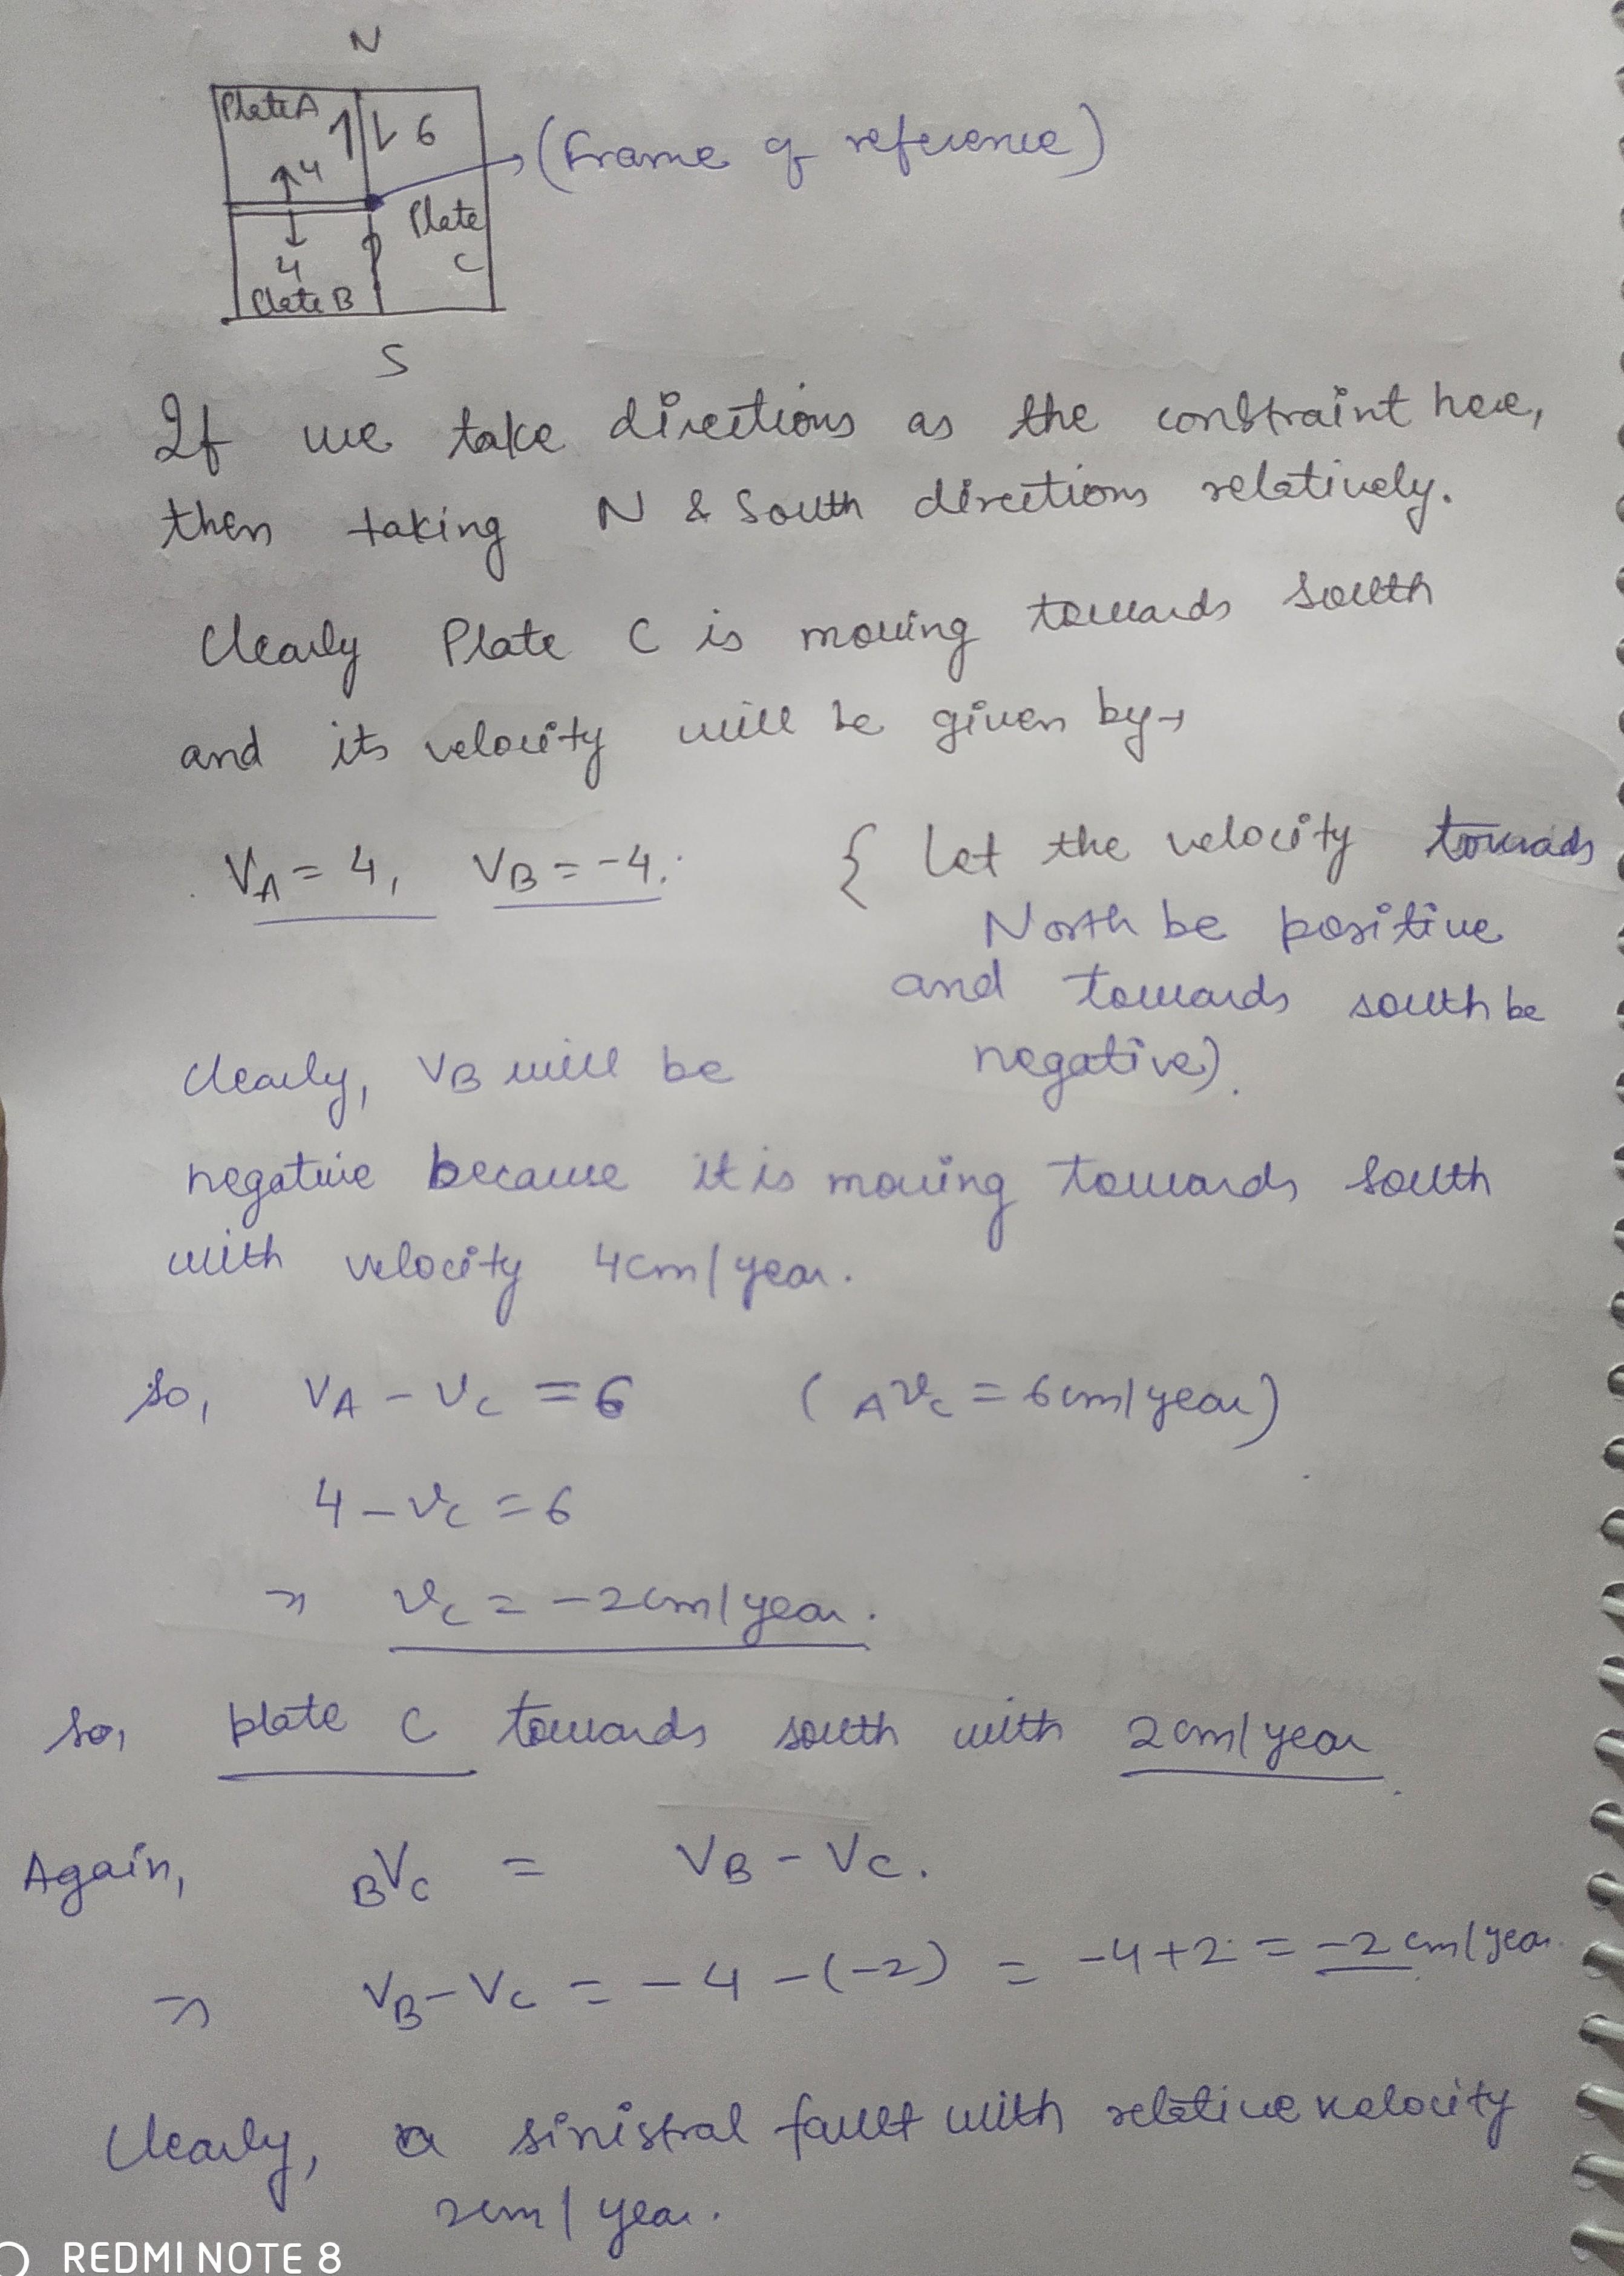 N
Plate A
6
(Frame of reference)
4
Plate
C
4
Plate B
S
If we take directions as the constraint here,
then taking N & South directions relatively.
Clearly Plate C is moving towards south
and its velocity will be given by→
VA = 4, VB = -4. { Let the velocity towards
North be positive
and towards south be
negative).
Clearly, VB will be
negative because it is moving towards south
with velocity 4cm/year.
So, VA - VC = 6 (AVC = 6cm/year)
4 - VC = 6
⇒ VC = -2cm/year.
So, plate C towards south with 2cm/year
Again, BVC = VB - VC.
⇒ VB - VC = -4 - (-2) = -4+2 = -2 cm/year.
Clearly, a sinistral fault with relative velocity
2cm/year.
REDMI NOTE 8